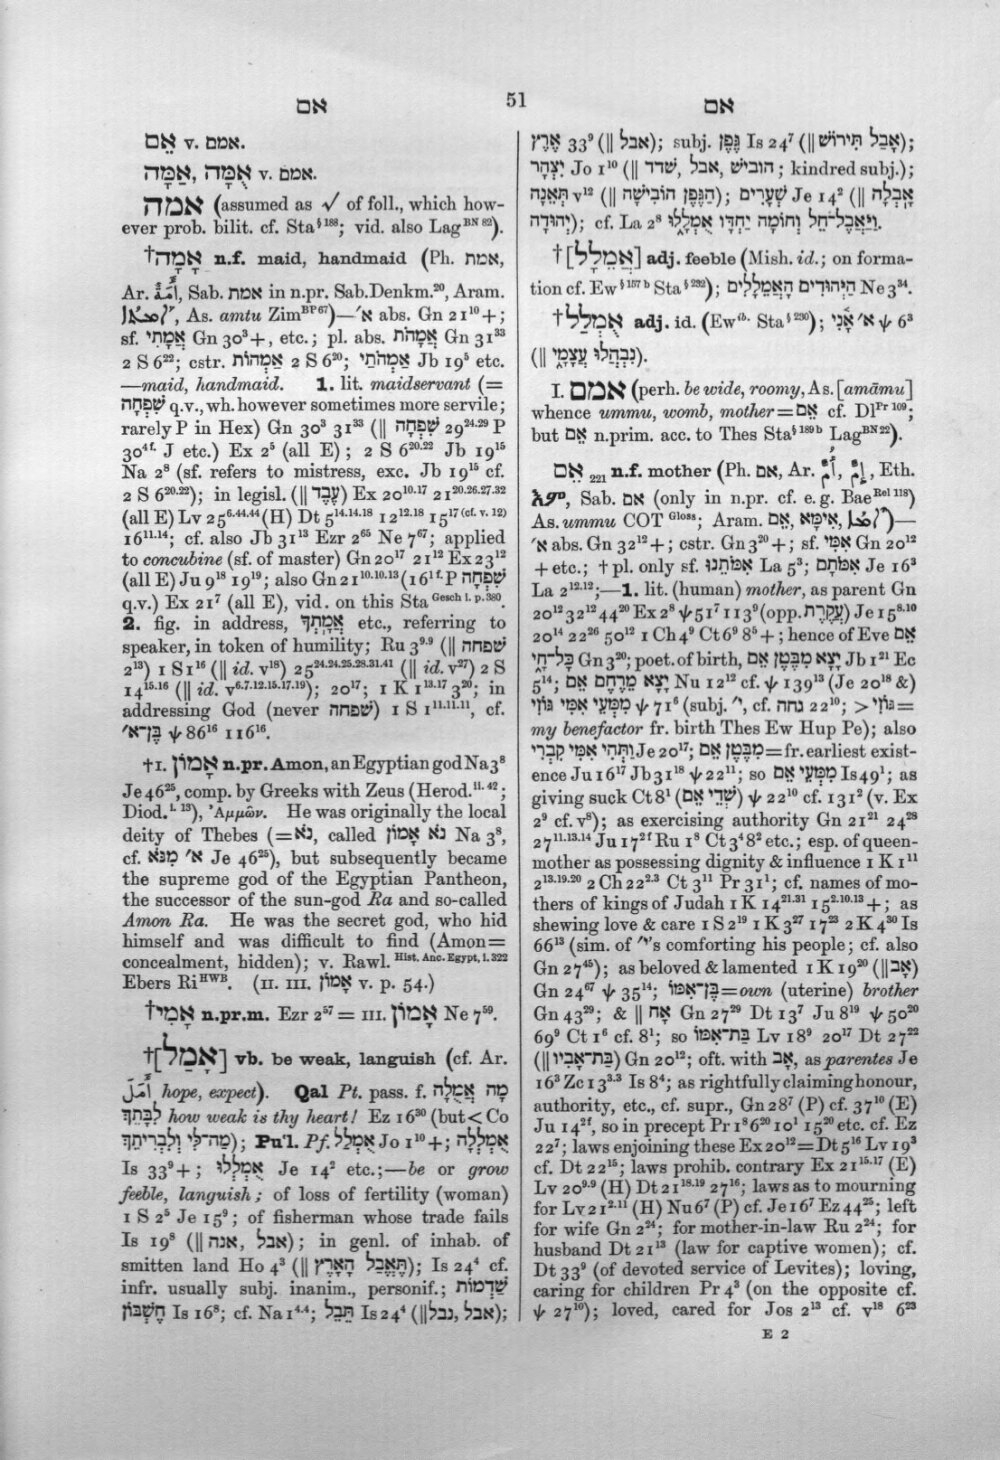 אם
51
אם
אֵם v. אמם.
אֻמָּה, אַמָּה v. אמם.
אמה (assumed as √ of foll., which how-
ever prob. bilit. cf. Sta§ 188; vid. also LagBN 82).
†אָמָה n.f. maid, handmaid (Ph. אמת,
Ar. أَمَةٌ, Sab. אמת in n.pr. Sab.Denkm.20, Aram.
As. amtu ZimBP 67)—א׳ abs. Gn 2110+;
sf. אֲמָתִי Gn 303+, etc.; pl. abs. אֲמָהֹת Gn 3133
2 S 622; cstr. אַמְהוֹת 2 S 620; אַמְהֹתַי Jb 195 etc.
—maid, handmaid. 1. lit. maidservant (=
שִׁפְחָה q.v., wh. however sometimes more servile;
rarely P in Hex) Gn 303 3133 (‖ שִׁפְחָה 2924.29 P
304f. J etc.) Ex 25 (all E); 2 S 620.22 Jb 1915
Na 28 (sf. refers to mistress, exc. Jb 1915 cf.
2 S 620.22); in legisl. (‖ עֶבֶד) Ex 2010.17 2120.26.27.32
(all E) Lv 256.44.44 (H) Dt 514.14.18 1212.18 1517 (cf. v. 12)
1611.14; cf. also Jb 3113 Ezr 265 Ne 767; applied
to concubine (sf. of master) Gn 2017 2112 Ex 2312
(all E) Ju 918 1919; also Gn 2110.10.13 (161f. P שִׁפְחָה
q.v.) Ex 217 (all E), vid. on this Sta Gesch i. p. 380.
2. fig. in address, אֲמָתְךָ etc., referring to
speaker, in token of humility; Ru 39.9 (‖ שפחה
213) 1 S 116 (‖ id. v18) 2524.24.25.28.31.41 (‖ id. v27) 2 S
1415.16 (‖ id. v6.7.12.15.17.19); 2017; 1 K 113.17 320; in
addressing God (never שפחה) 1 S 111.11.11, cf.
בֶּן־א׳ ψ 8616 11616.
†I. אָמוֹן n.pr. Amon, an Egyptian god Na 38
Je 4625, comp. by Greeks with Zeus (Herod.ii. 42;
Diod.i. 13), Ἀμμῶν. He was originally the local
deity of Thebes (=נֹא, called נֹא אָמוֹן Na 38,
cf. א׳ מִנֹּא Je 4625), but subsequently became
the supreme god of the Egyptian Pantheon,
the successor of the sun-god Ra and so-called
Amon Ra. He was the secret god, who hid
himself and was difficult to find (Amon=
concealment, hidden); v. Rawl. Hist. Anc. Egypt, i. 322
Ebers RiHWB. (II. III. אָמוֹן v. p. 54.)
†אָמִי n.pr.m. Ezr 257 = III. אָמוֹן Ne 759.
†[אָמַל] vb. be weak, languish (cf. Ar.
أَمَلَ hope, expect). Qal Pt. pass. f. מָה אֲמֻלָה
לִבָּתֵךְ how weak is thy heart! Ez 1630 (but < Co
מַה־לִּי וְלִבְרִיתֵךְ); Pu‘l. Pf. אֻמְלַל Jo 110+; אֻמְלְלָה
Is 339+; אֻמְלְלוּ Je 142 etc.;—be or grow
feeble, languish; of loss of fertility (woman)
1 S 25 Je 159; of fisherman whose trade fails
Is 198 (‖ אבל, אנה); in genl. of inhab. of
smitten land Ho 43 (‖ תֶּאֱבַל הָאָרֶץ); Is 244 cf.
infr. usually subj. inanim., personif.; שַׁדְמוֹת
חֶשְׁבּוֹן Is 168; cf. Na 14.4; תֵּבֵל Is 244 (‖ אבל, נבל);
אֶרֶץ 339 (‖ אבל); subj. גֶּפֶן Is 247 (‖ אָבַל תִּירוֹשׁ);
יִצְהָר Jo 110 (‖ הוביש, אבל, שדד; kindred subj.);
תְּאֵנָה v12 (‖ הַגֶּפֶן הוֹבִישָׁה); שְׁעָרִים Je 142 (‖ אָבְלָה
יְהוּדָה); cf. La 28 וַיַּאֲבֶל־חֵל וְחוֹמָה יַחְדָּו אֻמְלָלוּ.
†[אֲמֵלָל] adj. feeble (Mish. id.; on forma-
tion cf. Ew§ 157 b Sta§ 232); הַיְּהוּדִים הָאֲמֵלָלִים Ne 334.
†אֻמְלַל adj. id. (Ewib. Sta§ 230); א׳ אָ֫נִי ψ 63
(‖ נִבְהֲלוּ עֲצָמָי).
I. אמם (perh. be wide, roomy, As. [amāmu]
whence ummu, womb, mother = אֵם cf. DlPr 109;
but אֵם n.prim. acc. to Thes Sta§ 189 b LagBN 22).
אֵם 221 n.f. mother (Ph. אם, Ar. أُمّ, إِمّ, Eth.
እም, Sab. אם (only in n.pr. cf. e.g. BaeRel 118)
As. ummu COT Gloss; Aram. אֵם, אִימָא,—
א׳ abs. Gn 3212+; cstr. Gn 320+; sf. אִמִּי Gn 2012
+ etc.; † pl. only sf. אִמֹּתֵנוּ La 53; אִמֹּתָם Je 163
La 212.12;—1. lit. (human) mother, as parent Gn
2012 3212 4420 Ex 28 ψ 517 1139 (opp. עֲקֶרֶת) Je 158.10
2014 2226 5012 1 Ch 49 Ct 69 85+; hence of Eve אֵם
כָּל־חָי Gn 320; poet. of birth, יָצָא מִבֶּטֶן אֵם Jb 121 Ec
514; יָצָא מֵרֶחֶם אֵם Nu 1212 cf. ψ 13913 (Je 2018 &)
מִמְּעֵי אִמִּי גּוֹזִי ψ 716 (subj. י׳, cf. גחה 2210; > גּוֹזִי =
my benefactor fr. birth Thes Ew Hup Pe); also
וַתְּהִי אִמִּי קִבְרִי Je 2017; מִבֶּטֶן אֵם = fr. earliest exist-
ence Ju 1617 Jb 3118 ψ 2211; so מִמְּעֵי אֵם Is 491; as
giving suck Ct 81 (שְׁדֵי אֵם) ψ 2210 cf. 1312 (v. Ex
29 cf. v8); as exercising authority Gn 2121 2428
2711.13.14 Ju 172f Ru 18 Ct 34 82 etc.; esp. of queen-
mother as possessing dignity & influence 1 K 111
213.19.20 2 Ch 222.3 Ct 311 Pr 311; cf. names of mo-
thers of kings of Judah 1 K 1421.31 152.10.13+; as
shewing love & care 1 S 219 1 K 327 1723 2 K 430 Is
6613 (sim. of י׳’s comforting his people; cf. also
Gn 2745); as beloved & lamented 1 K 1920 (‖ אָב)
Gn 2467 ψ 3514; בֶּן־אִמּוֹ = own (uterine) brother
Gn 4329; & ‖ אָח Gn 2729 Dt 137 Ju 819 ψ 5020
699 Ct 16 cf. 81; so בַּת־אִמּוֹ Lv 189 2017 Dt 2722
(‖ בַּת־אָבִיו) Gn 2012; oft. with אָב, as parentes Je
163 Zc 133.3 Is 84; as rightfully claiming honour,
authority, etc., cf. supr., Gn 287 (P) cf. 3710 (E)
Ju 142f, so in precept Pr 18 620 101 1520 etc. cf. Ez
227; laws enjoining these Ex 2012 = Dt 516 Lv 193
cf. Dt 2215; laws prohib. contrary Ex 2115.17 (E)
Lv 209.9 (H) Dt 2118.19 2716; laws as to mourning
for Lv 212.11 (H) Nu 67 (P) cf. Je 167 Ez 4425; left
for wife Gn 224; for mother-in-law Ru 224; for
husband Dt 2113 (law for captive women); cf.
Dt 339 (of devoted service of Levites); loving,
caring for children Pr 43 (on the opposite cf.
ψ 2710); loved, cared for Jos 213 cf. v18 623
E 2